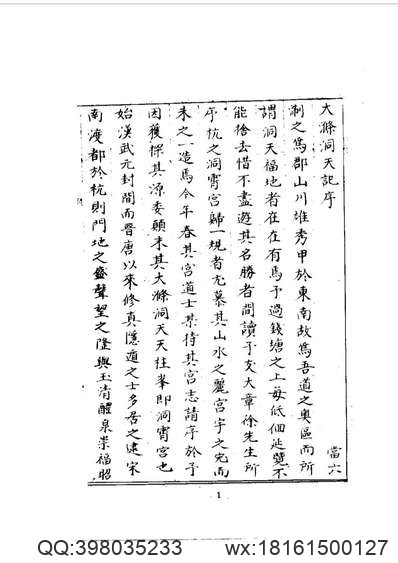 大滌洞天記序 當六
浙之爲郡山川雄秀甲於東南故爲吾道之奧區而所
謂洞天福地者在在有焉予過錢塘之上每低佪延覽不
能捨去惜不盡遊其名勝者間讀予友大章徐先生所
序杭之洞霄宮歸一規者尤慕其山水之麗宮宇之完而
未之一造焉今年春其宮道士某持其宮志請序於予
因獲探其源委顛末其大滌洞天天柱峯即洞霄宮也
始漢武元封間而晉唐以來修真隱遁之士多居之逮宋
南渡都於杭則門地之盛聲望之隆與玉清醴泉崇福昭
1
QQ:398035233 wx:18161500127